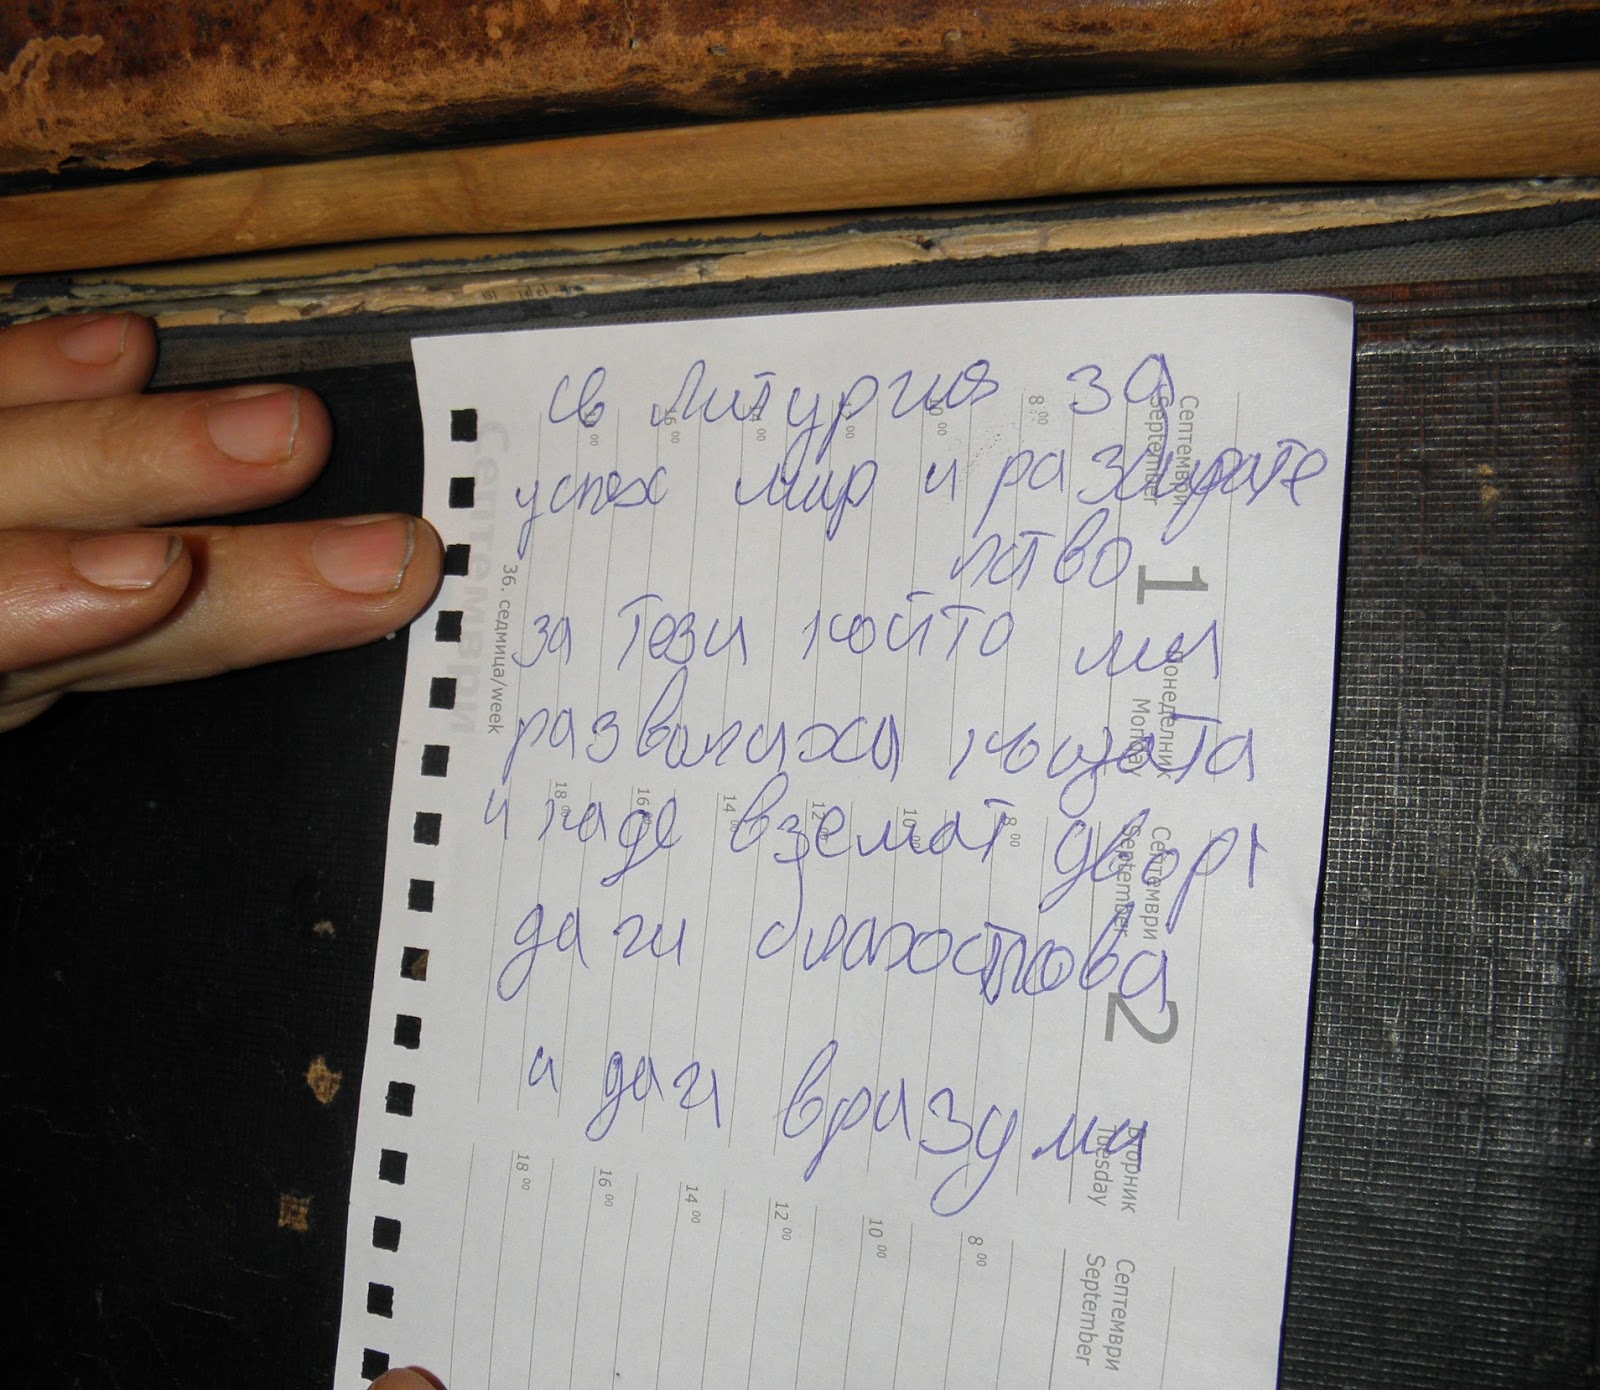 св литургия за
успех мир и разидате
лство
за тези който ми
развалиха къщата
и каде вземат дворı
да ги благостова
и да ги вразуми
Септември
September
1
Понеделник
Monday
36. седмица/week
Септември
18 00
16 00
14 00
12 00
10 00
8 00
Септември
September
2
Вторник
Tuesday
18 00
16 00
14 00
12 00
10 00
8 00
Септември
September